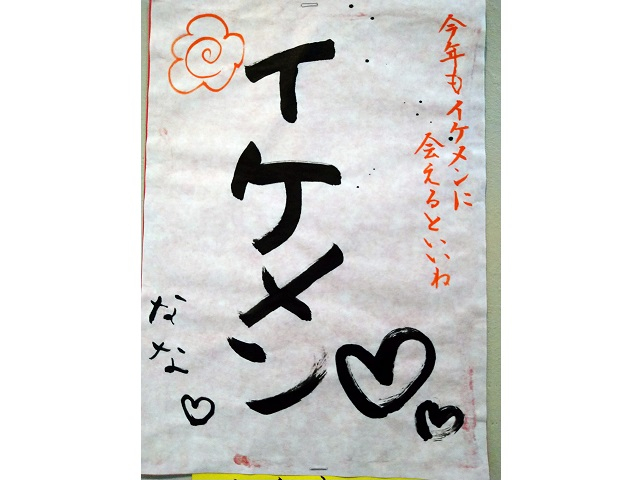 今年もイケメンに
会えるといいわ
イケメン
なな